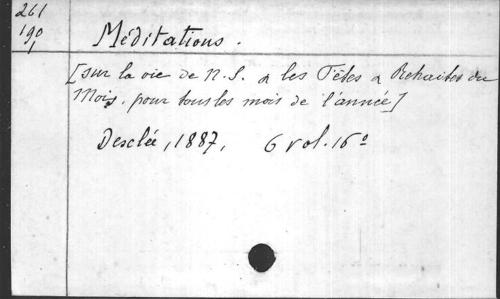 261
190
1
Méditations.
[sur la vie de N.S. & les Fêtes & Retraites du
Mois, pour tous les mois de l'année]
Desclée, 1887, 6 vol. 16º